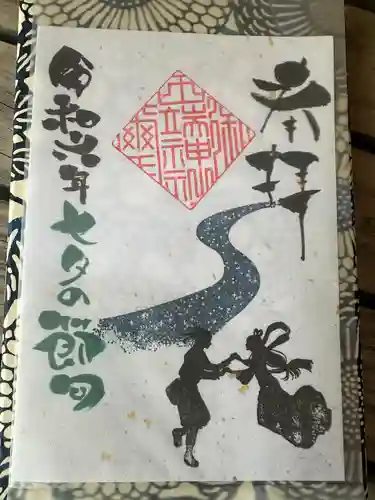 奉拝
令和六年 七夕の節句